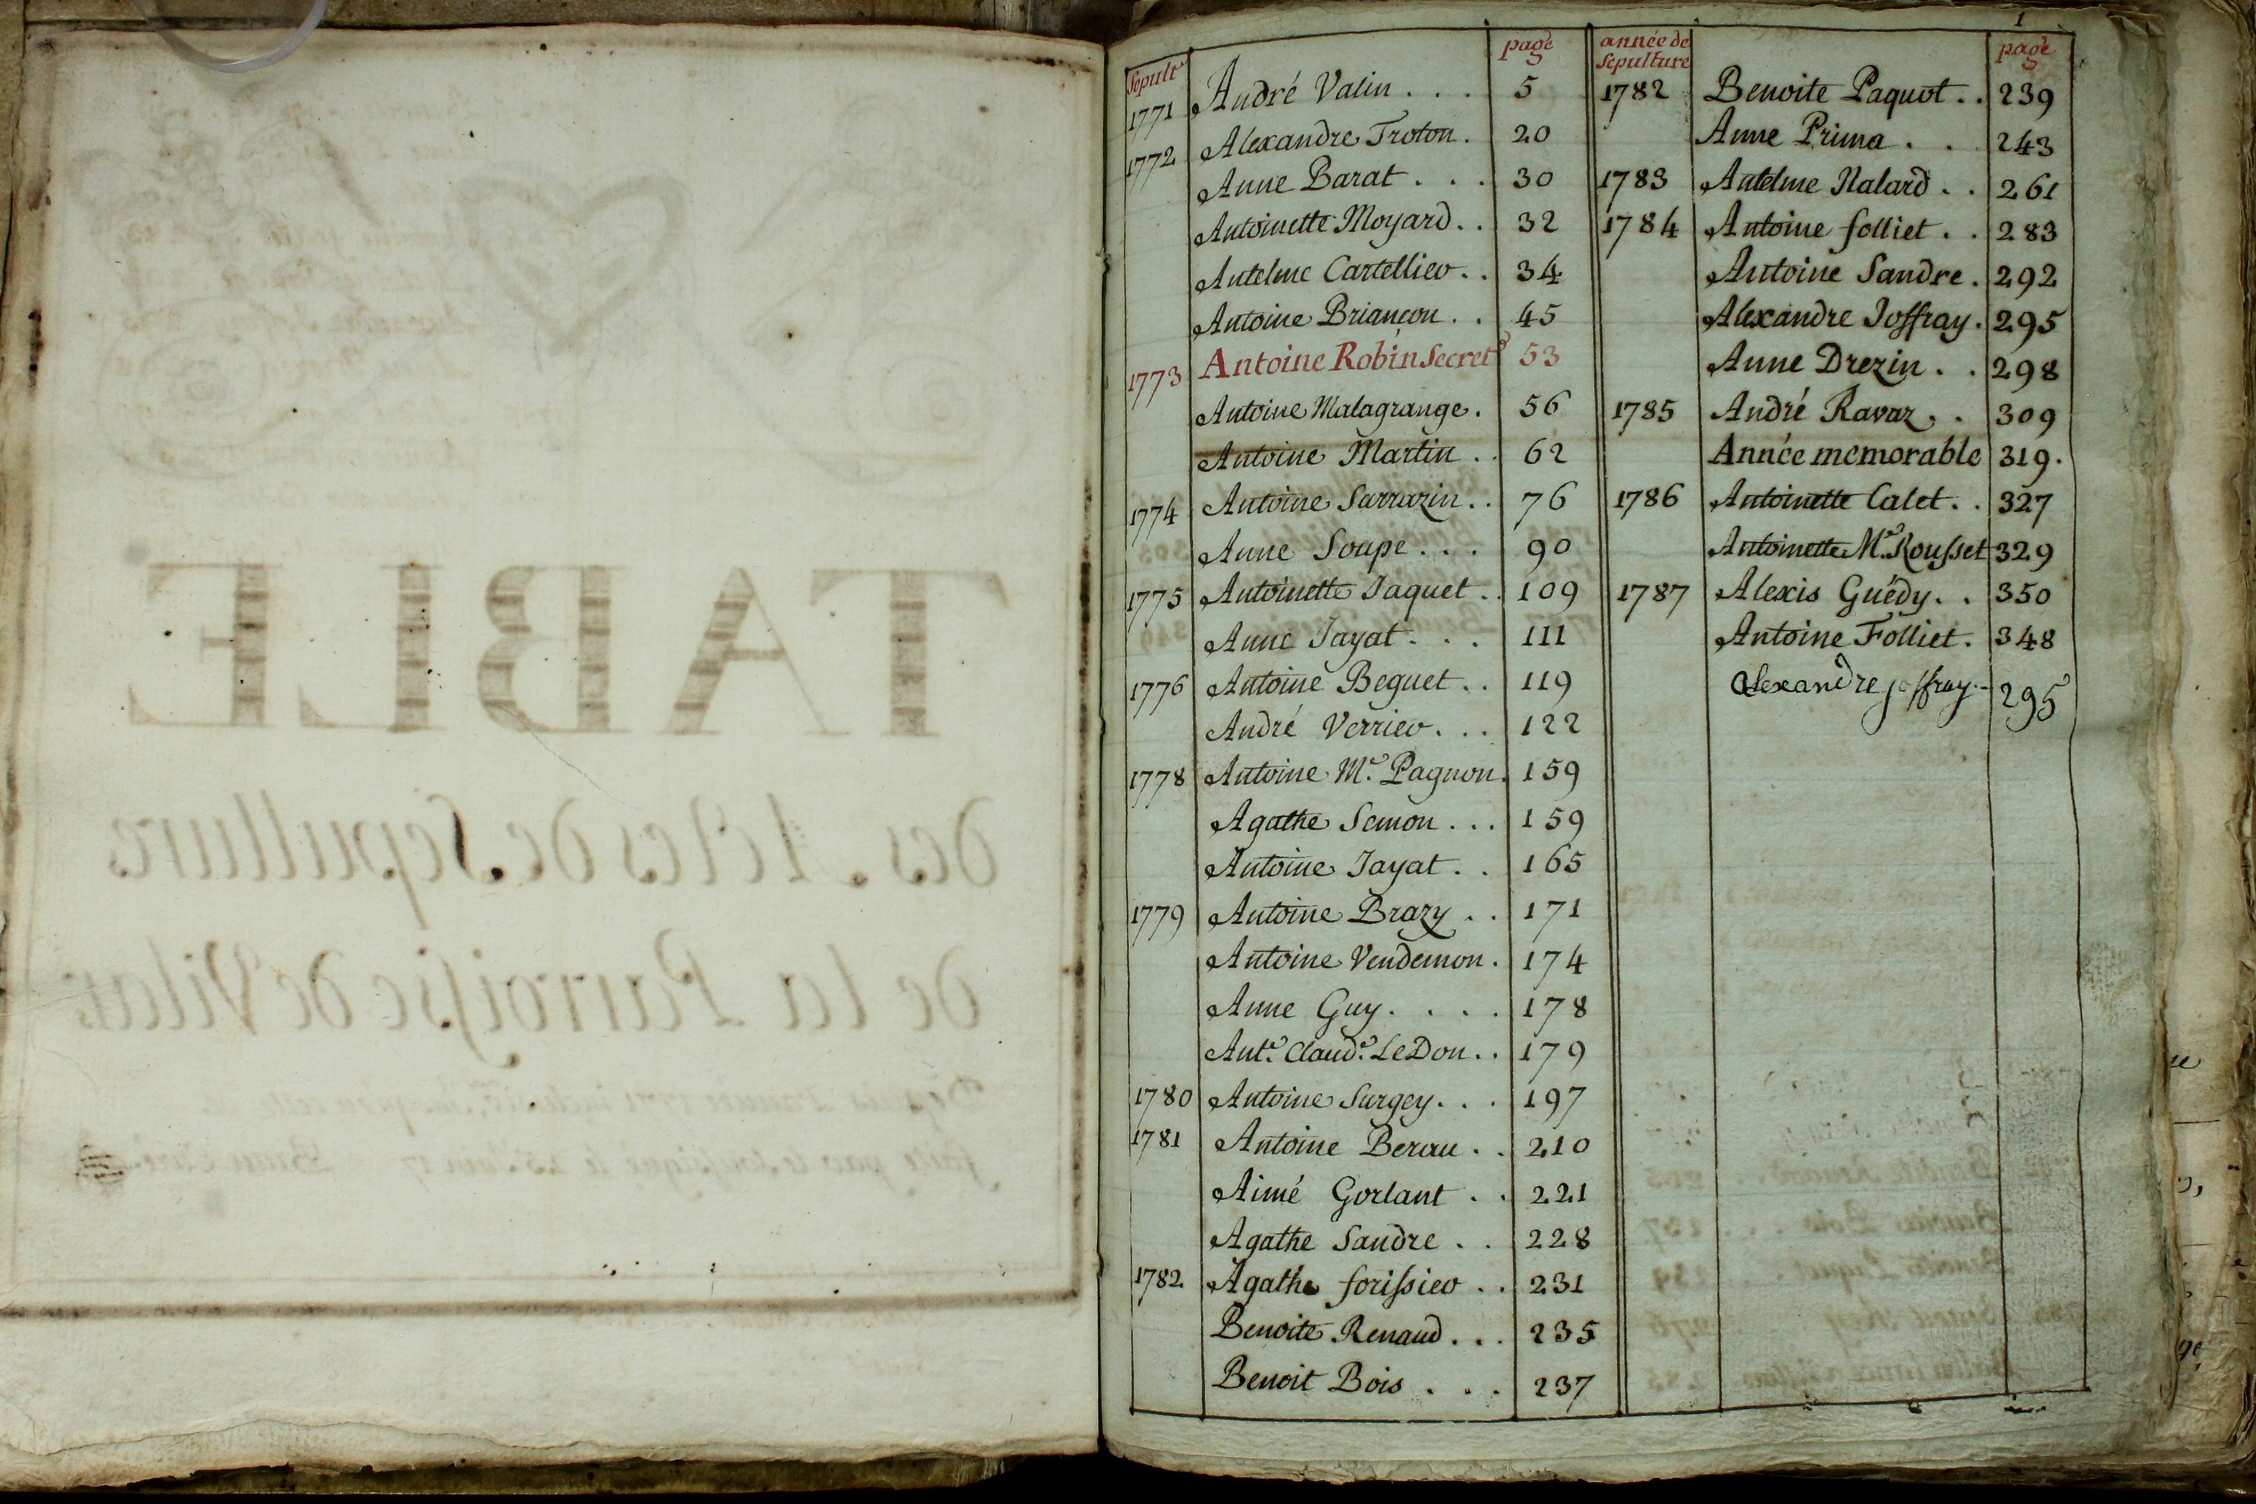 TABLE
des Actes de Sepulture
de la Parroisse de Vilar
1
Sepult^re page
1771 André Vatin . . . 5
1772 Alexandre Troton . 20
Anne Barat . . . 30
Antoinette Moyard . . 32
Antelme Cartellier . . 34
Antoine Briançon . . 45
1773 Antoine Robin Secret^e 53
Antoine Malagrange . 56
Antoine Martin . . 62
1774 Antoine Sarrazin . . 76
Anne Soupe . . . 90
1775 Antoinette Jaquet . . 109
Anne Jayat . . . 111
1776 Antoine Beguet . . 119
André Verrier . . . 122
1778 Antoine M^e. Pagnon . 159
Agathe Semon . . . 159
Antoine Jayat . . 165
1779 Antoine Brazy . . 171
Antoine Vendemon . 174
Anne Guy . . . . 178
Ant^e. Claud^e. LeDon . . 179
1780 Antoine Surgey . . . 197
1781 Antoine Berau . . 210
Aimé Gorlant . . 221
Agathe Sandre . . 228
1782 Agathe forissier . . 231
Benoite Renaud . . . 235
Benoit Bois . . . 237
année de sepulture page
1782 Benoite Paquot . . 239
Anne Prima . . 243
1783 Antelme Nalard . . 261
1784 Antoine folliet . . 283
Antoine Sandre . 292
Alexandre Joffray . 295
Anne Drezin . . 298
1785 André Ravaz . . 309
Année memorable 319.
1786 Antoinette Catet . . 327
Antoinette M^e. Rousset 329
1787 Alexis Guédy . . 350
Antoine Folliet . 348
Alexandre joffray . - 295